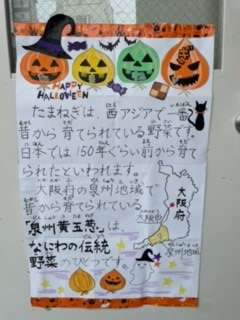 HAPPY
HALLOWEEN
たまねぎは、西アジアで一番
昔から育てられている野菜です。
日本では150年ぐらい前から育て
られたといわれます。
大阪府の泉州地域で
昔から育てられている
「泉州黄玉葱」は、
なにわの伝統
野菜のひとつです。
大阪府
大阪市
泉州地域